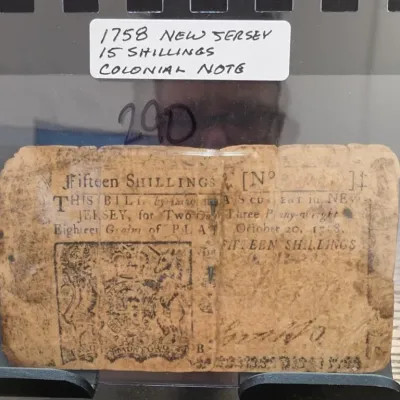 1758 NEW JERSEY
15 SHILLINGS
COLONIAL NOTE
290
Fifteen SHILLINGS [No ]
THIS BILL by Law AS current in NEW
JERSEY, for Two Three Penny-weight
Eighteen Grains of PLA October 20, 1758.
FIFTEEN SHILLINGS
R